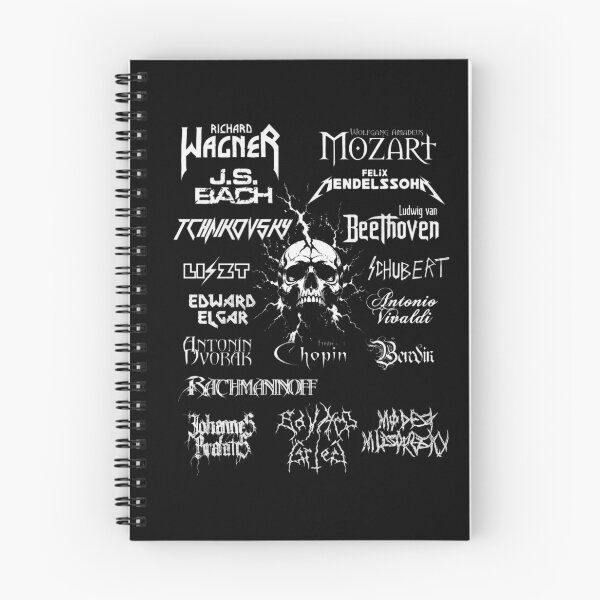 RICHARD
WAGNER
WOLFGANG AMADEUS
MOZART
J.S.
BACH
FELIX
MENDELSSOHN
TCHAIKOVSKY
Ludwig van
Beethoven
LISZT
SCHUBERT
EDWARD
ELGAR
Antonio
Vivaldi
ANTONIN
DVORAK
Chopin
RACHMANINOFF
Johannes
Brahms
MODEST
MUSSORGSKY